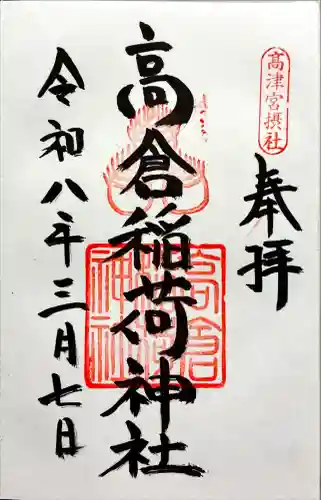 高津宮摂社
奉拝
高倉稲荷神社
高倉稲荷神社
令和八年三月七日